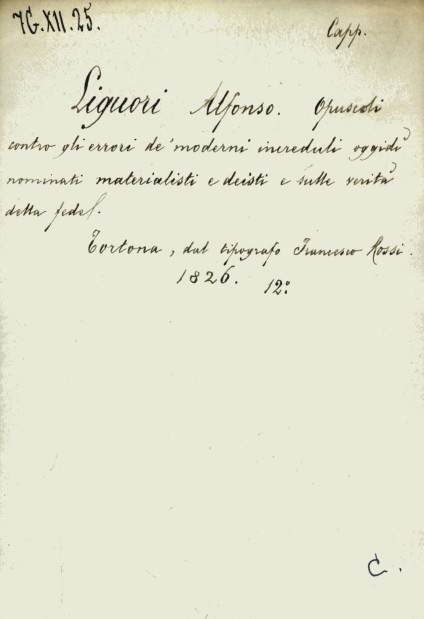 7G.XII.25.
Capp.
Liguori Alfonso. Opuscoli
contro gli errori de' moderni increduli oggidì
nominati materialisti e deisti e sulle verità
della fede.
Tortona, dal tipografo Francesco Rossi.
1826. 12°
C.